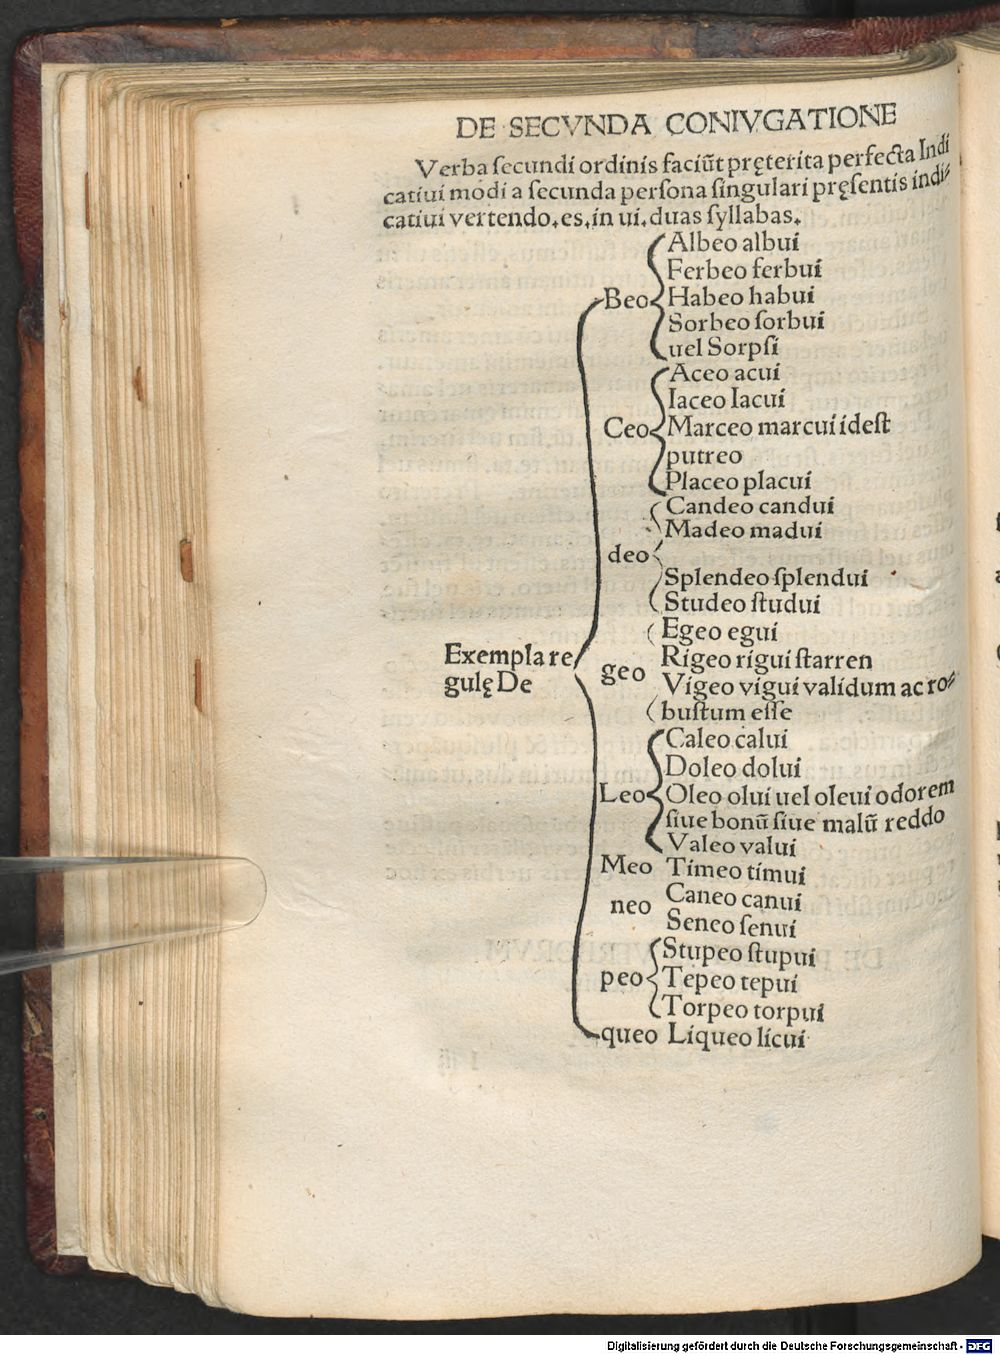 DE SECVNDA CONIVGATIONE
Verba ſecundi ordinis faciūt pręterita perfecta Indi
catiui modi a ſecunda perſona ſingulari pręſentis indi⸗
catiui vertendo.es.in ui.duas ſyllabas.
Beo
Albeo albui
Ferbeo ferbui
Habeo habui
Sorbeo ſorbui
uel Sorpſi
Ceo
Aceo acui
Iaceo Iacui
Marceo marcui ideſt
putreo
Placeo placui
deo
Candeo candui
Madeo madui
Splendeo ſplendui
Studeo ſtudui
Exempla re
gulę De
geo
Egeo egui
Rigeo rigui ſtarren
Vigeo vigui validum ac ro⸗
buſtum eſſe
Leo
Caleo calui
Doleo dolui
Oleo olui uel oleui odorem
ſiue bonū ſiue malū reddo
Valeo valui
Meo Timeo timui
neo
Caneo canui
Seneo ſenui
peo
Stupeo ſtupui
Tepeo tepui
Torpeo torpui
queo Liqueo licui
Digitalisierung gefördert durch die Deutsche Forschungsgemeinschaft - DFG